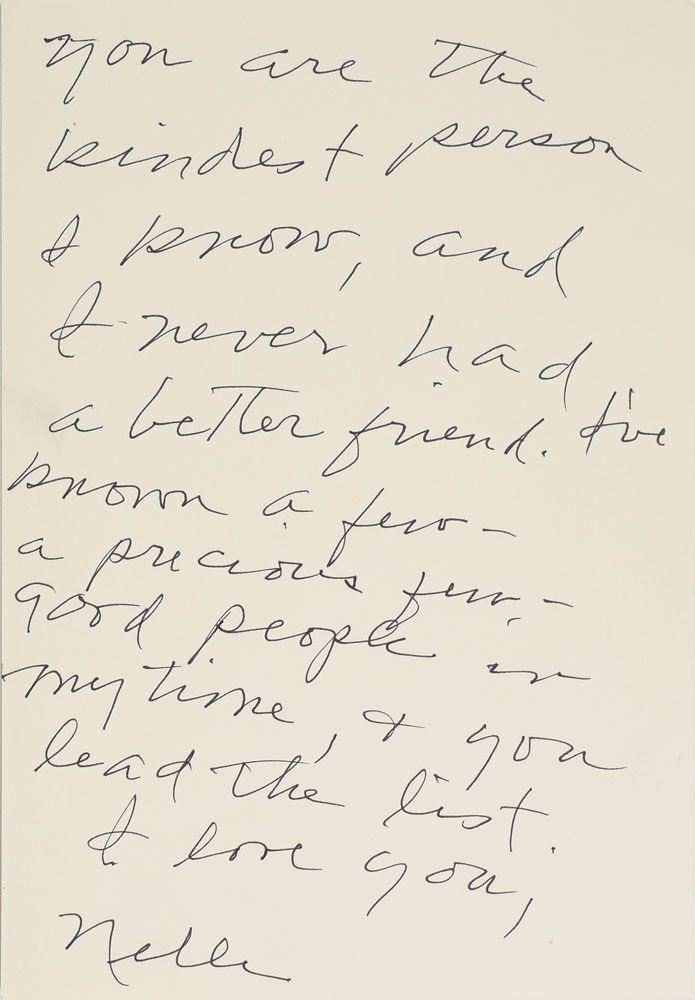 You are the
kindest person
I know, and
I never had
a better friend. I've
known a few –
a precious few –
good people in
my time, & you
lead the list.
I love you,
Nelle